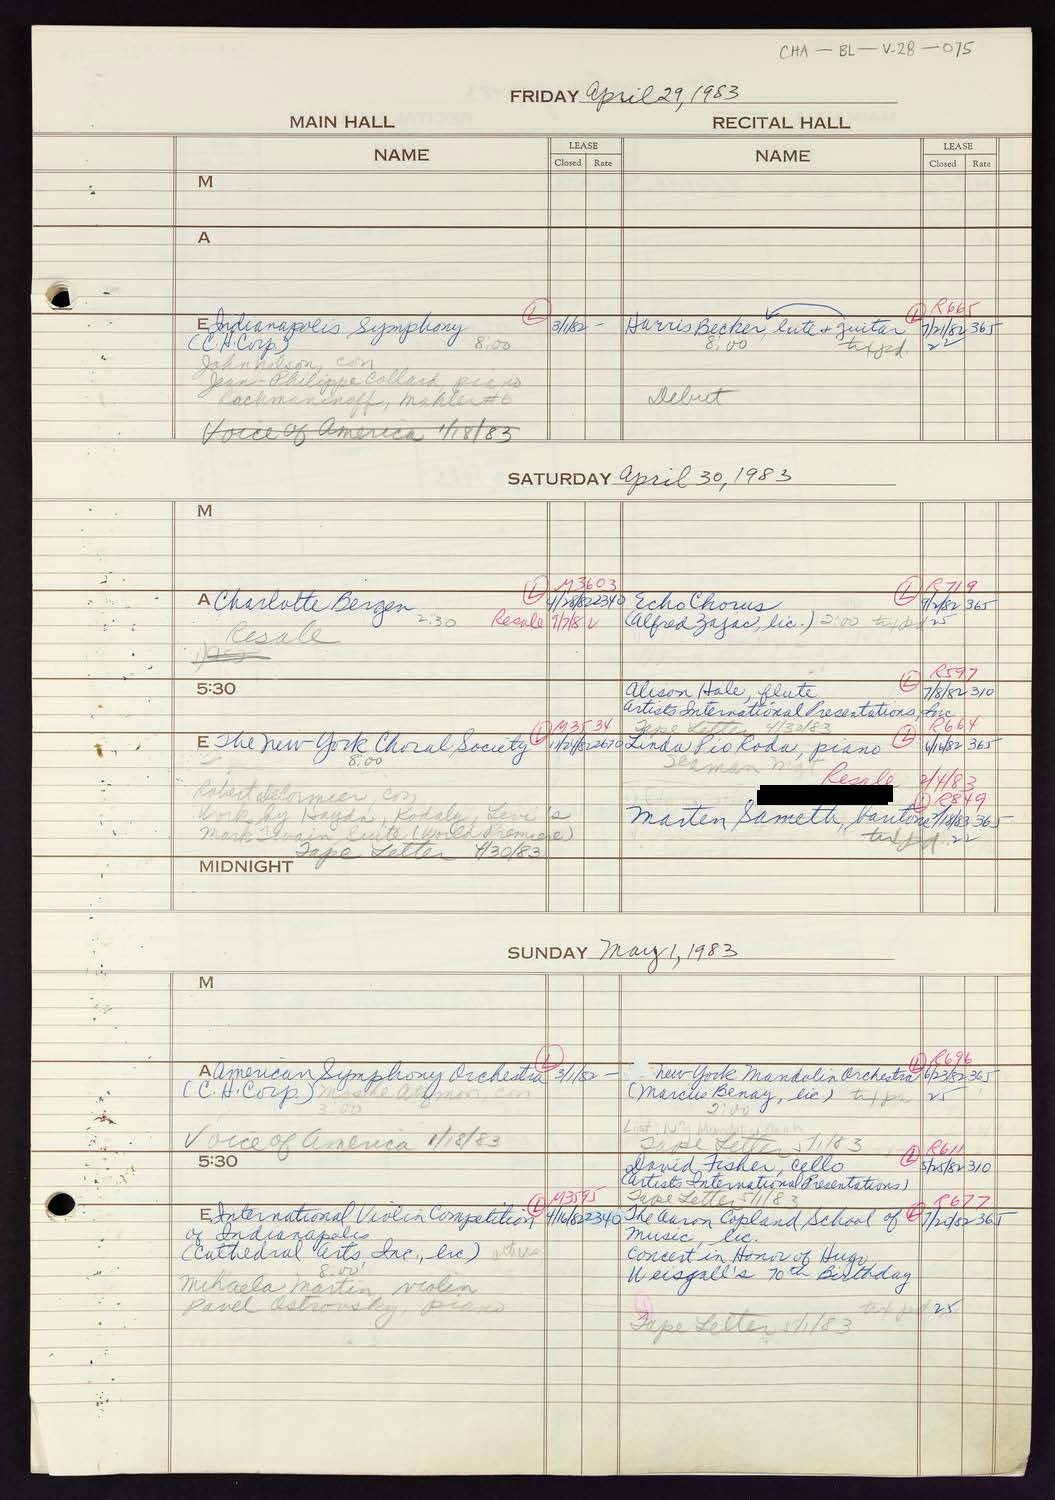 CHA — BL — V-28 — 075
FRIDAY April 29, 1983
MAIN HALL
RECITAL HALL
NAME
LEASE
Closed Rate
NAME
LEASE
Closed Rate
M
A
E Indianapolis Symphony L 3/1/82 -
(C.H. Corp) 8:00
John Nelson, con
Jean-Philippe Collard, piano
Rachmaninoff, Mahler #6
Voice of America 1/18/83
L R665
Harris Becker, lute + guitar 7/21/82 365
8:00 tax pd. 22
Debut
SATURDAY April 30, 1983
M
L M3603
A Charlotte Bergen 4/28/82 2340
2:30 Resale 7/7/82
Resale
L R719
Echo Chorus 9/2/82 365
(Alfred Zajac, lic.) 2:00 tax pd 25
5:30
L R597
Alison Hale, flute 7/8/82 310
Artists International Presentations, Inc
Tape Letter 4/30/83
L M3534
E The New York Choral Society 2670
8:00
Robert DeCormier, con
Work by Haydn, Kodaly, Levi's
Mark Twain Suite (World Premiere)
Tape Letter 4/30/83
L R664
Linda Pio Roda, piano 365
Seaman Mgt
Resale 2/4/83
L R849
Marten Sameth, baritone 365
tax pd. 22
MIDNIGHT
SUNDAY May 1, 1983
M
A American Symphony Orchestra L 3/1/82 -
(C.H. Corp) Moshe Atzmon, con
3:00
Voice of America 1/18/83
L R696
New York Mandolin Orchestra 6/23/82 365
(Marcus Benay, lic) tax pd 25
2:00
Tape Letter 5/1/83
5:30
L R611
David Fisher, cello 5/25/82 310
(Artists International Presentations)
Tape Letter 5/1/83
L M3595
E International Violin Competition 4/16/82 2340
of Indianapolis
(Cathedral Arts, Inc., lic)
8:00
Mihaela Martin, violin
Pavel Ostrovsky, piano
L R677
The Aaron Copland School of 365
Music, lic.
Concert in Honor of Hugo
Weisgall's 70th Birthday
tax pd 25
Tape Letter 5/1/83